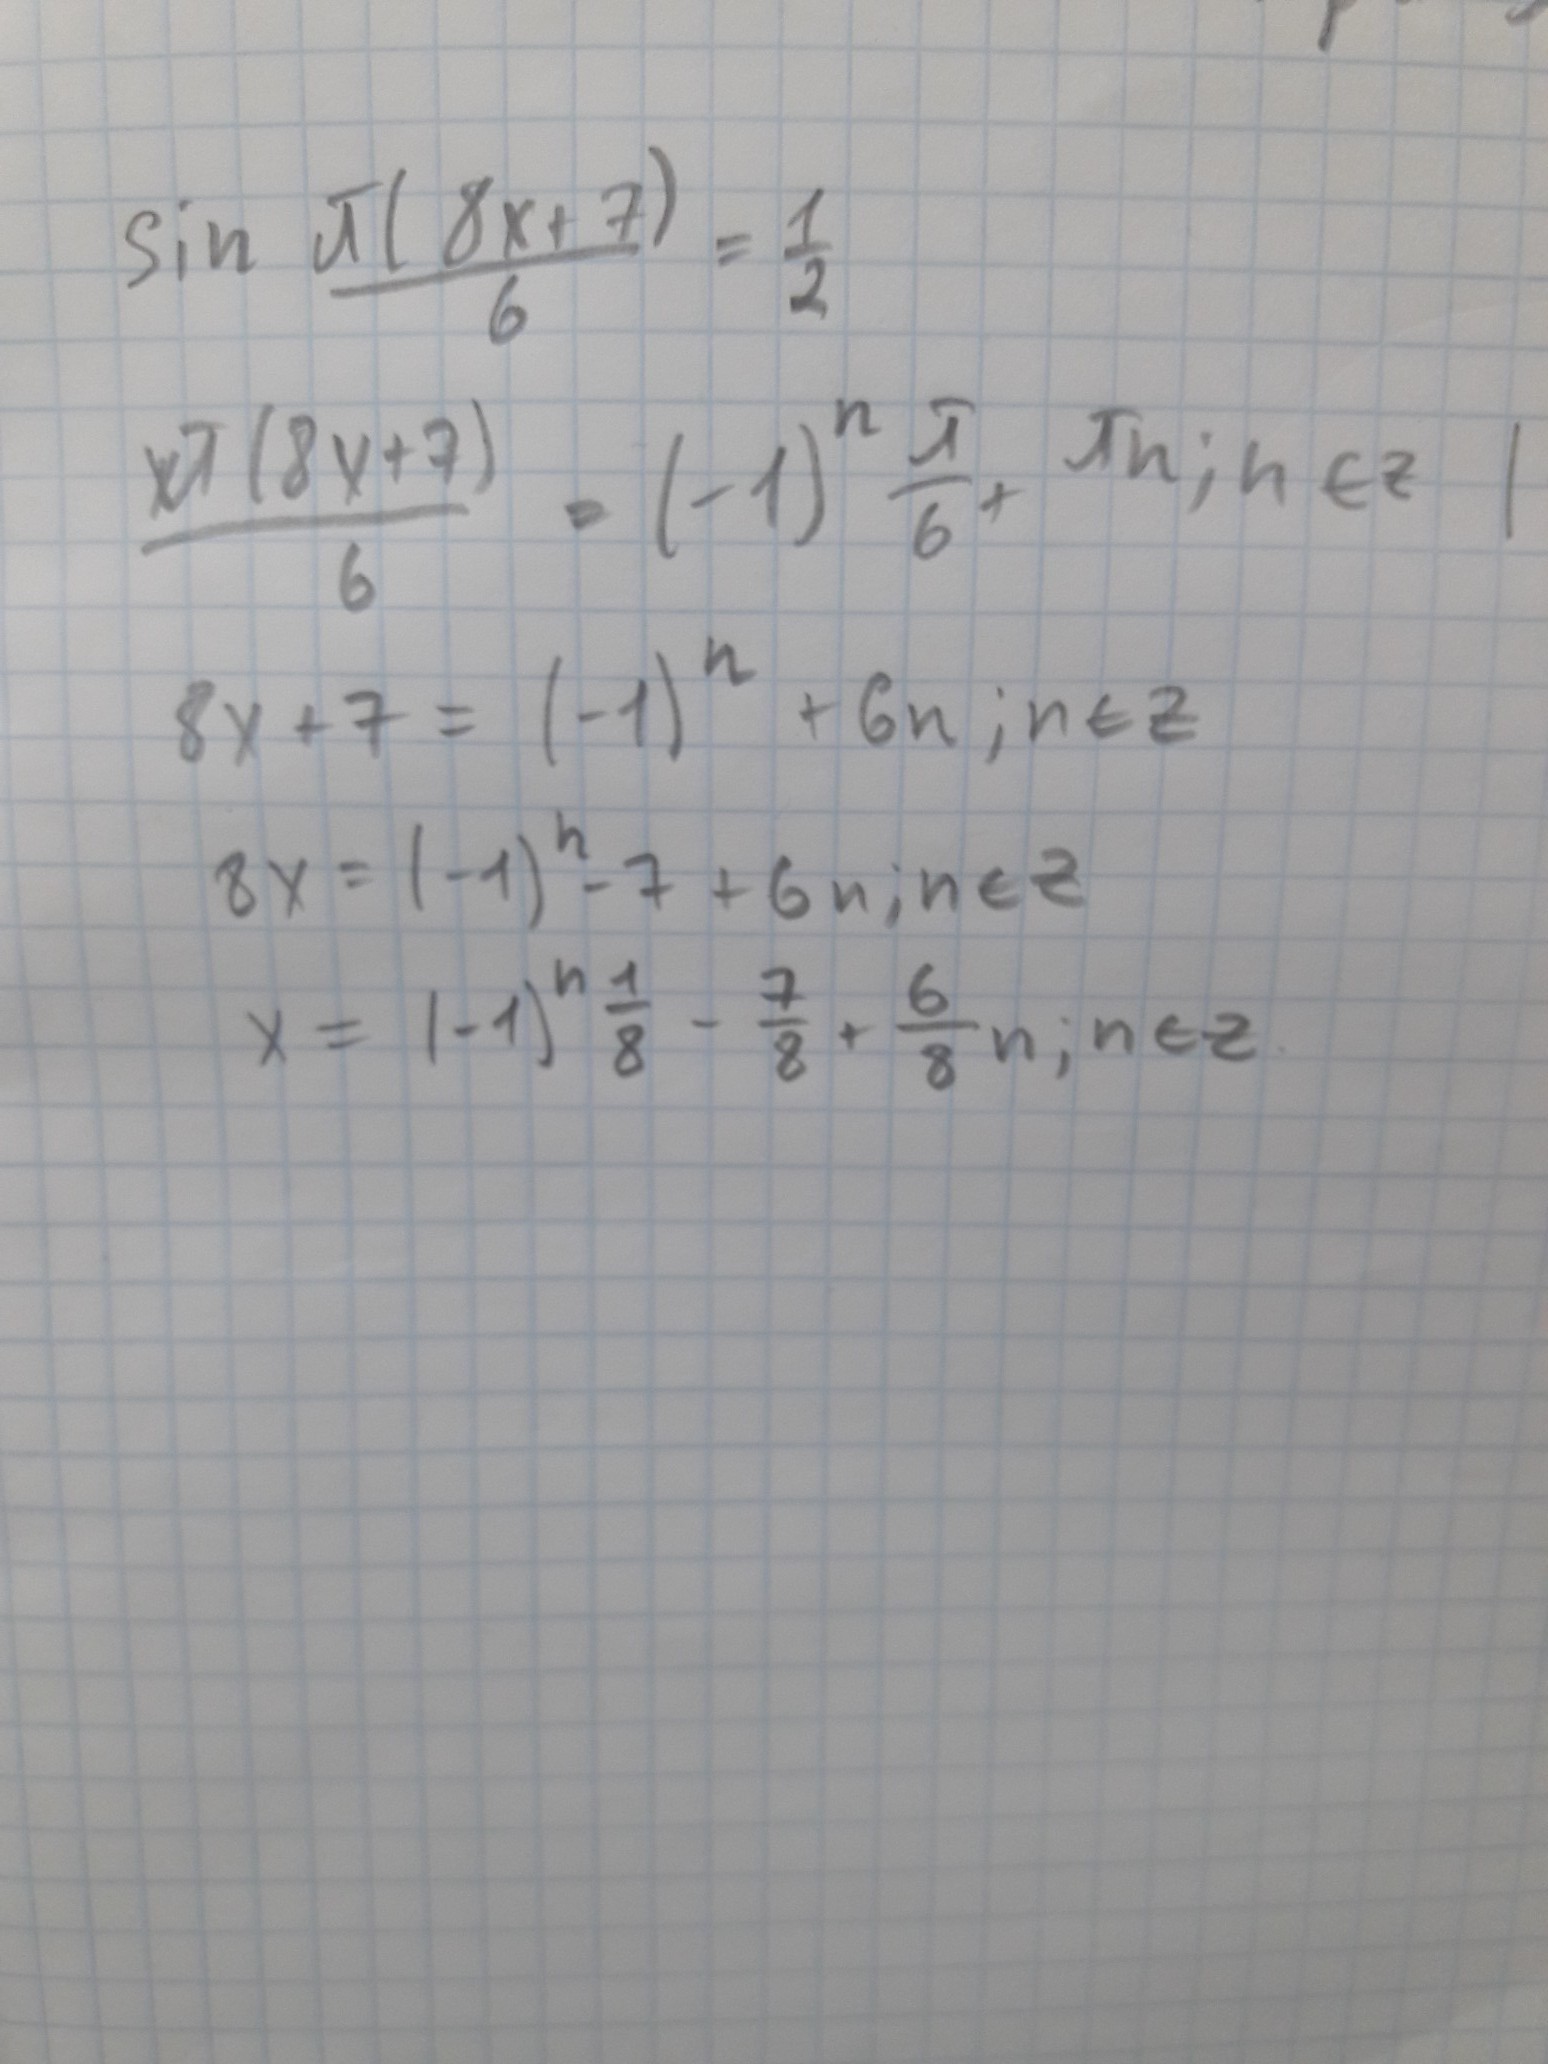 sin π(8x+7)/6 = 1/2
π(8x+7)/6 = (-1)^n π/6 + πn; n ∈ z |
8x+7 = (-1)^n + 6n; n ∈ z
8x = (-1)^n - 7 + 6n; n ∈ z
x = (-1)^n 1/8 - 7/8 + 6/8 n; n ∈ z